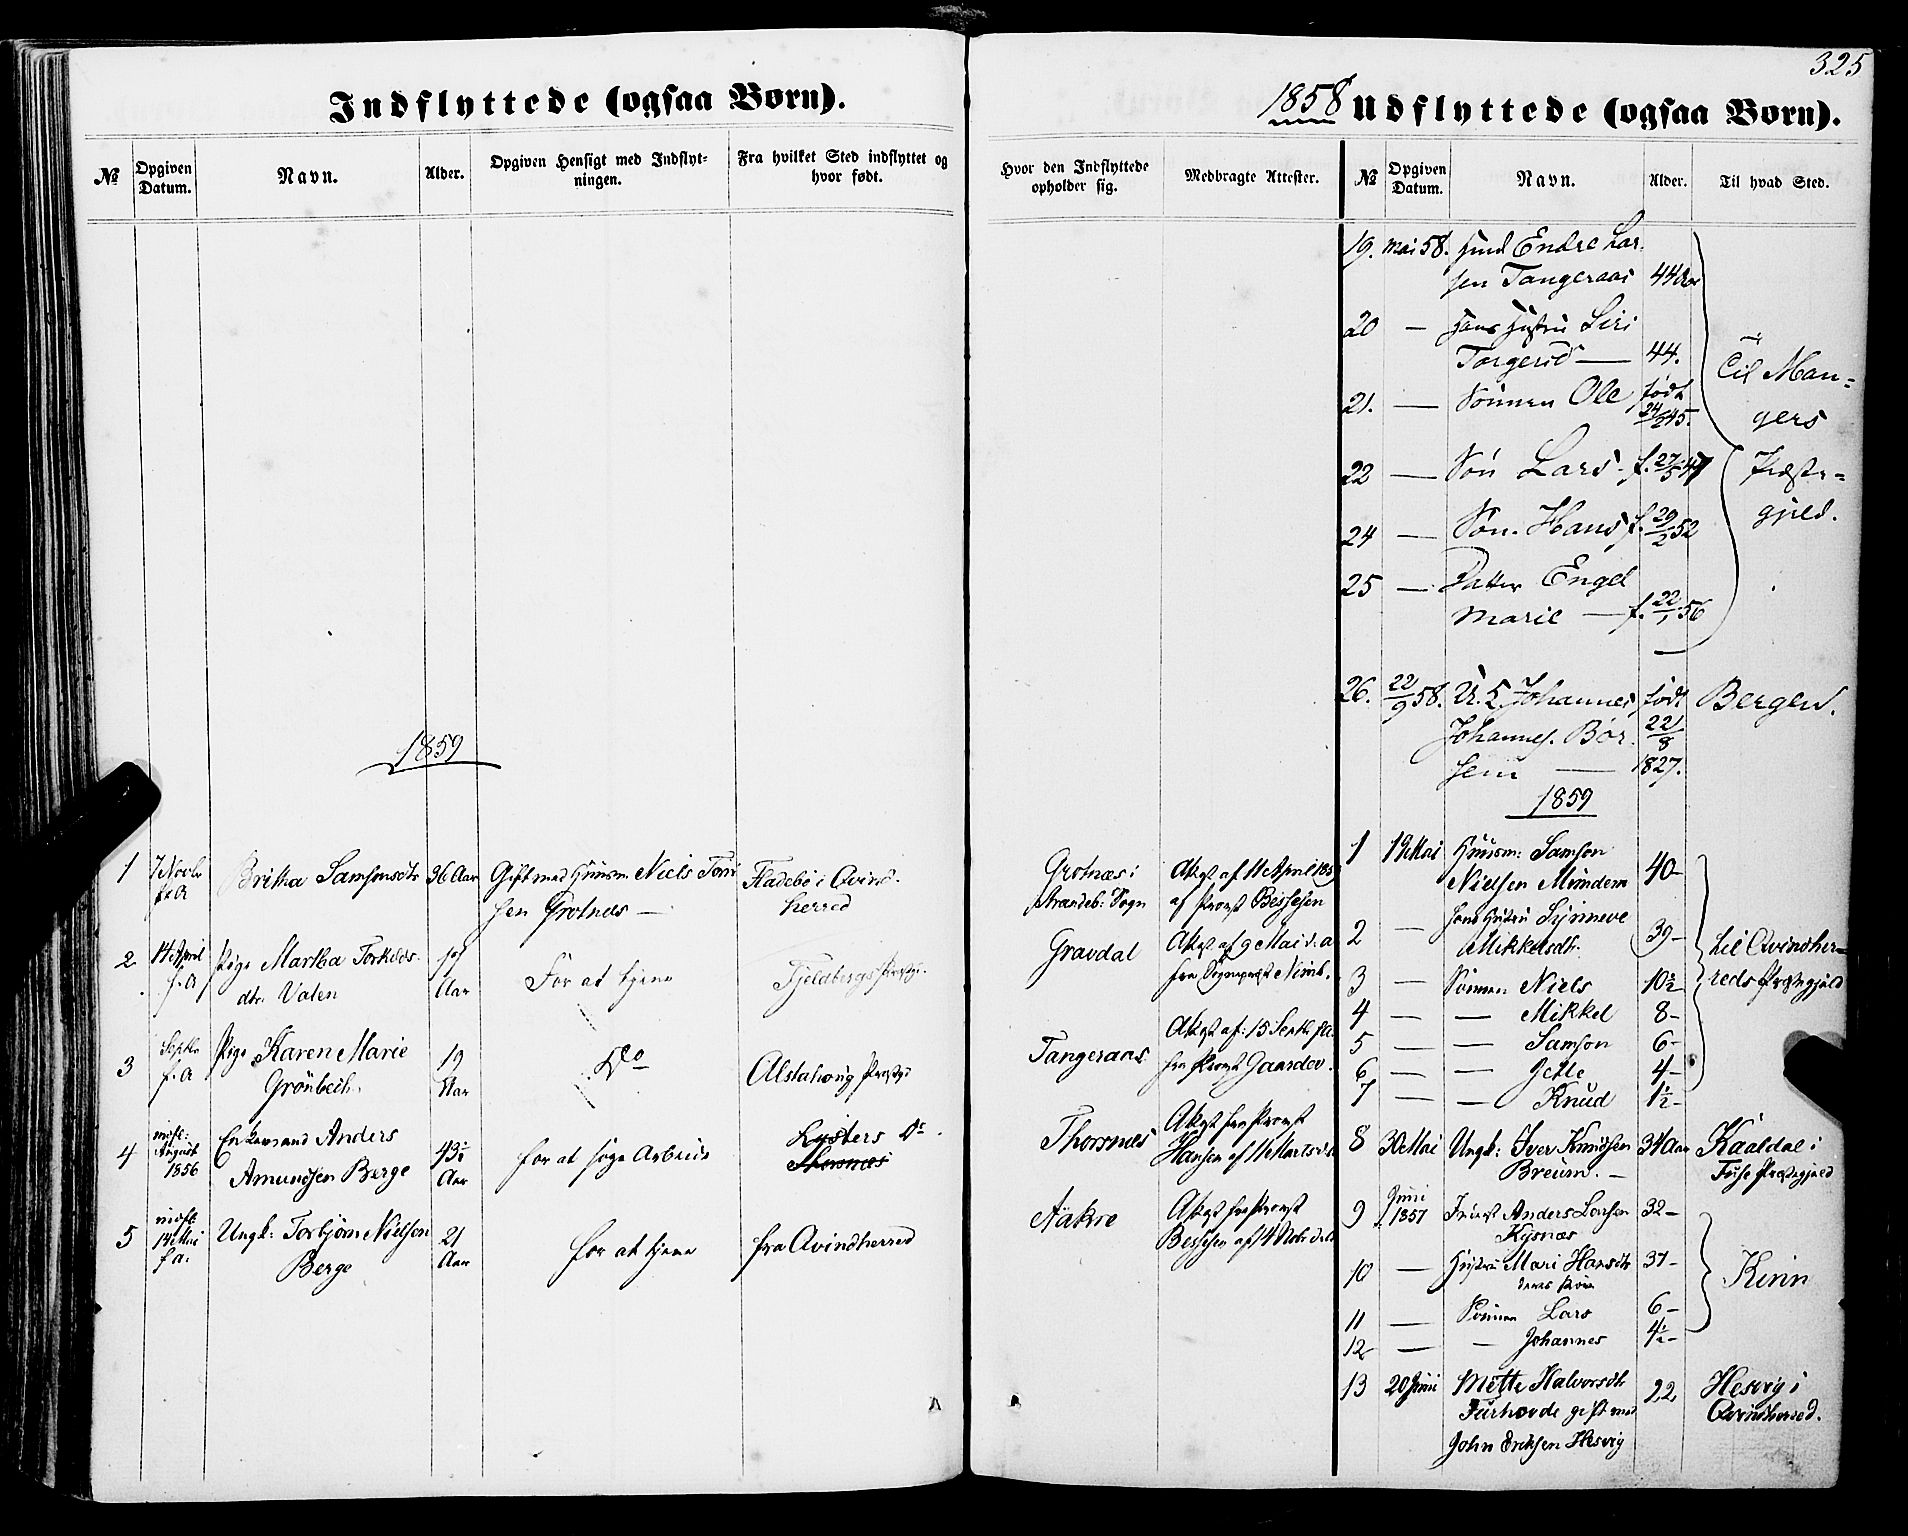 325
Indflyttede (ogsaa Børn).
№
Opgiven Datum.
Navn.
Alder.
Opgiven Hensigt med Indflyt-
ningen.
Fra hvilket Sted indflyttet og
hvor født.
Hvor den Indflyttede
opholder sig.
Medbragte Attester.
1859
1 7 Novbr f. A
Britha Samsonsdtr 36 Aar
Gift med Huusm. Niels Tørri
sen Grotnes —
Fladebø i Qvind-
herred
Grotnæs i
Strandeb: Sogn
Attest af 11 April 1859
af Provst Bessesen
2 14 April f. A
Pige Martha Torkilds-
dtr. Valen
Aar
For at tjene
Fjeldbergs Præstgj.
Gravdal
Attest af 9 Mai d. a
fra Sognepræst
3 Septbr f. A
Pige Karen Marie
Grönbech.
19
Aar
Do
Alstahoug Præstgj
Tangeraas
Attest af 15 Septbr f. a.
fra Provst
4 indfl: August 1856
Enkemand Anders
Amundsen Berge
43½
Aar
for at søge Arbeide
Lysters Do.
Thorsnæs
Thorsnes
Attest fra Provst
Hansen af 11 Marts d. a
5 indfl 14 Mai f a.
Ungk: Torbjørn Nielsen
Berge
21
Aar
for at tjene
fra Qvindherred
Aakre
Attest fra Provst
Bessesen af 14 Novbr d. a
1858 Udflyttede (ogsaa Børn).
№
Opgiven Datum.
Navn.
Alder.
Til hvad Sted.
19. mai 58. Huusm Endre Lar-
sen Tangeraas 44 Aar
20 — Hans Hustru Siri
Torgersd — 44.
21. — Sønnen Ole født
24/2 45.
22 — Søn Lars f. 27/5 47
24 — Søn. Hans f. 29/2 52
25 — Datter Engel
Marie — f. 22/1 56
Til Man-
gers
Præste-
gjeld.
26. 22/9 58. U. K. Johannes født
Johannes. Bør- 22/8
sem — 1827.
Bergen.
1859
1 19 Mai Huusm: Samson
Nielsen Mundem 40-
2 — Hans Hustru Synneve
Mikkelsdtr. 39-
3 — Sønnen Niels 10½
4 — — Mikkel 8-
5 — — Samson 6-
6 — — Gjette 4-
7 — — Knud 1½-
til Qvindher-
reds Præstegjeld
8 30 Mai Ungk: Iver Knudsen 34 Aar
Breum. —
Kaaldal i
Fuse Præstegjeld
9 Juni 1857 Inderst Anders Larsen 32-
Kysnæs
10 — Hustru Mari Hansdtr 37-
deres Børn
11 — Sønnen Lars 6-
12 — — Johannes 4½-
Kinn
13 20 Juni Mette Halvorsdtr 22
Furhovde gift med
John Eriksen Hesvig
Hesvig i
Qvindherred.